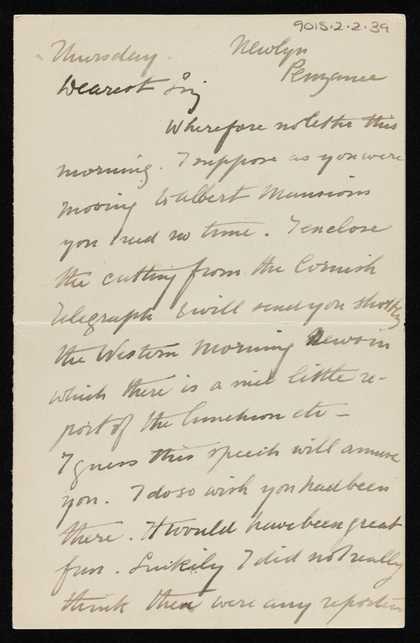 9015-2-2-39
Thursday. Newlyn
Penzance
Dearest Siz
Wherefore no letter this
morning. I suppose as you were
moving to Albert Mansions
you had no time. I enclose
the cutting from the Cornish
Telegraph & will send you shortly
the Western Morning News in
which there is a nice little re-
port of the luncheon etc -
I guess this speech will amuse
you. I do so wish you had been
there. It would have been great
fun. Luckily I did not really
think there were any reporters